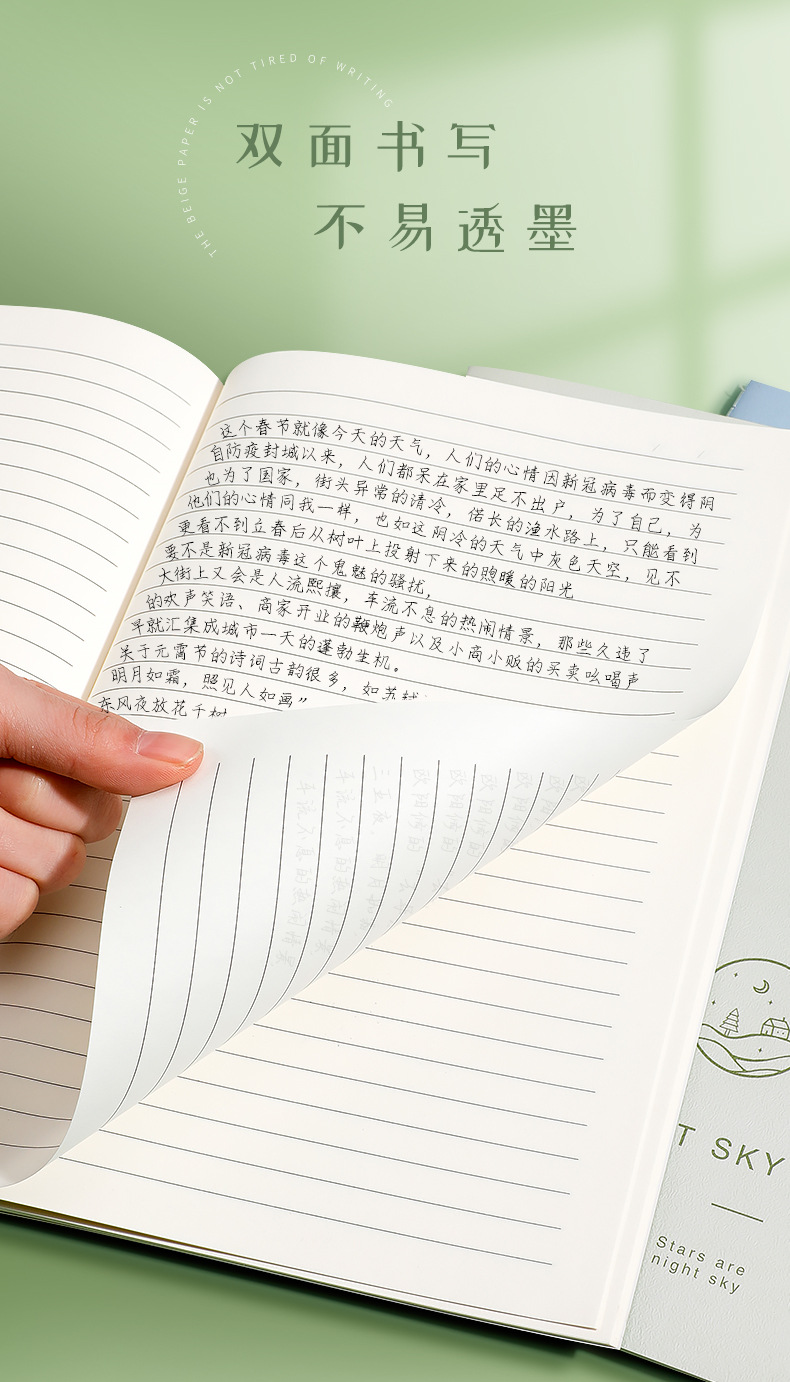 THE BEIGE PAPER IS NOT TIRED OF WRITING
双面书写
不易透墨
这个春节就像今天的天气，人们的心情因新冠病毒而变得阴
自防疫封城以来，人们都呆在家里足不出户，为了自己，为
也为了国家，街头异常的清冷，偌长的渔水路上，只能看到
他们的心情同我一样，也如这阴冷的天气中灰色天空，见不
更看不到立春后从树叶上投射下来的煦暖的阳光
要不是新冠病毒这个鬼魅的骚扰，
大街上又会是人流熙攘，车流不息的热闹情景，那些久违了
的欢声笑语、商家开业的鞭炮声以及小商小贩的买卖吆喝声
早就汇集成城市一天的蓬勃生机。
关于元宵节的诗词古韵很多，如苏轼
明月如霜，照见人如画”
东风夜放花千树
T SKY
Stars are
night sky